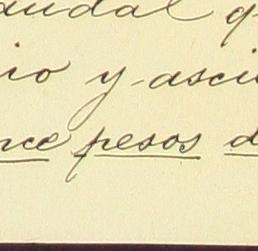 audal q
io y asci
nce pesos d